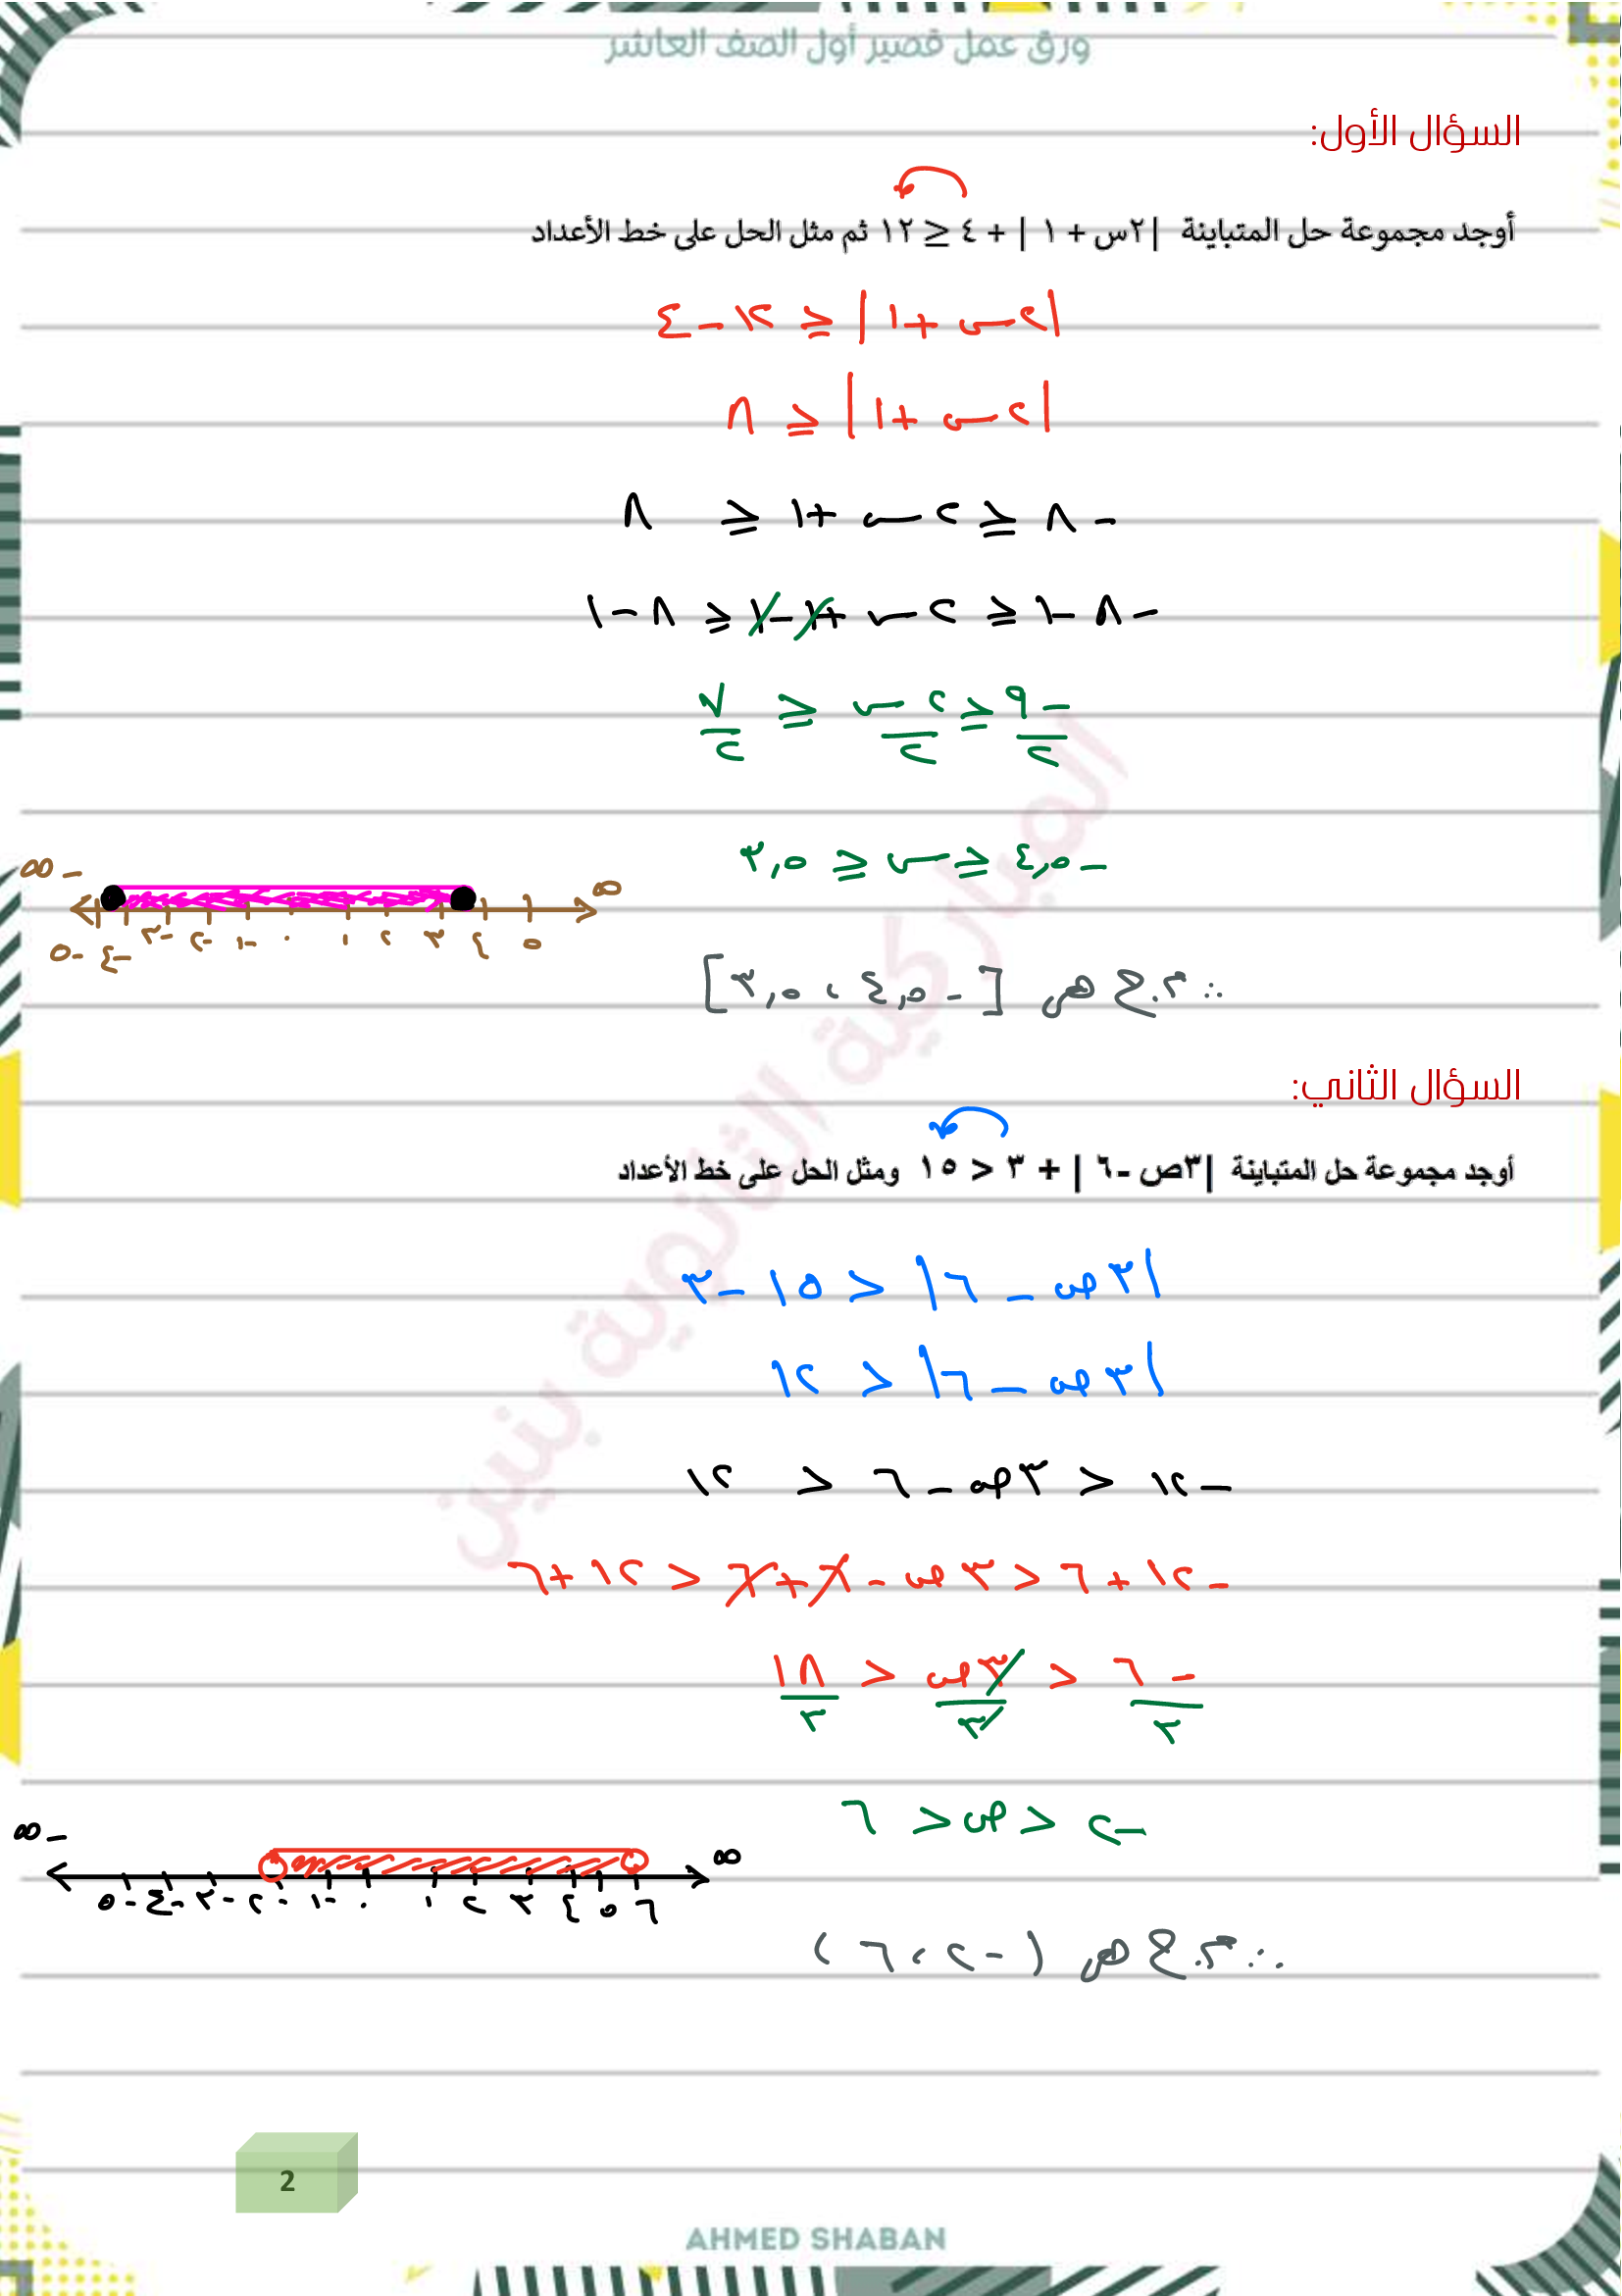 ورق عمل قصير أول الصف العاشر
السؤال الأول:
أوجد مجموعة حل المتباينة |٢س + ١ | + ٤ ≤ ١٢ ثم مثل الحل على خط الأعداد
|٢س + ١| ≤ ١٢ - ٤
|٢س + ١| ≤ ٨
-٨ ≤ ٢س + ١ ≤ ٨
-٨ - ١ ≤ ٢س + ١ - ١ ≤ ٨ - ١
-٩/٢ ≤ ٢س/٢ ≤ ٧/٢
-٤,٥ ≤ س ≤ ٣,٥
-∞ ∞
-٥ -٤ -٣ -٢ -١ ٠ ١ ٢ ٣ ٤ ٥
∴ م.ح هي [-٤,٥ ، ٣,٥]
السؤال الثاني:
أوجد مجموعة حل المتباينة |٣ص -٦ | + ٣ < ١٥ ومثل الحل على خط الأعداد
|٣ص - ٦| < ١٥ - ٣
|٣ص - ٦| < ١٢
-١٢ < ٣ص - ٦ < ١٢
-١٢ + ٦ < ٣ص - ٦ + ٦ < ١٢ + ٦
-٦/٣ < ٣ص/٣ < ١٨/٣
-٢ < ص < ٦
-∞ ∞
-٥ -٤ -٣ -٢ -١ ٠ ١ ٢ ٣ ٤ ٥ ٦
∴ م.ح هي (-٢ ، ٦)
المباركية الثانوية بنين
2
AHMED SHABAN